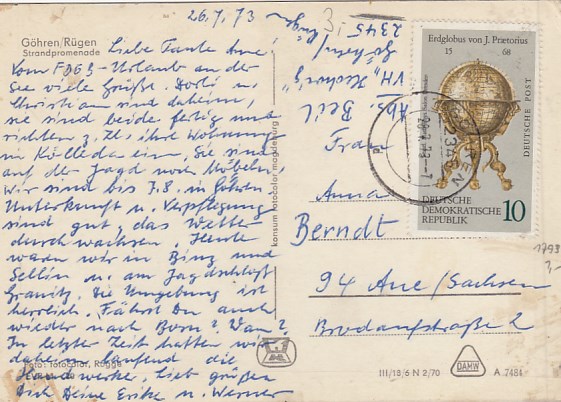 26.7.73
Göhren/Rügen
Strandpromenade
Liebe Tante Anne!
Vom FDGB-Urlaub an der
See viele Grüße. Dorli u.
Christian sind daheim,
sie sind beide fertig und
richten z. Zt. ihre Wohnung
in Kölleda ein, sie sind
auf der Jagd nach Möbeln,
wir sind bis 7.8. in Göhren.
Unterkunft u. Verpflegung
sind gut, das Wetter
durchwachsen. Heute
waren wir in Binz und
Sellin u. am Jagdschloß
Granitz. Die Umgebung ist
herrlich. Fährst Du auch
wieder nach Born? Wann?
In letzter Zeit hatten wir
daheim laufend die
Handwerker. Lieb grüßen
Dich Deine Erika u. Werner
Foto: fotocolor, Rügge
konsum fotocolor magdeburg
Abs. Beil
VH "Hedwig"
2345 Göhren/Rüg.
3,-
Erdglobus von J. Prætorius
15 68
DEUTSCHE POST
DEUTSCHE
DEMOKRATISCHE
REPUBLIK
10
2345
28.7.73-7
Frau
Anna
Berndt
94 Aue/Sachsen
Brodaufstraße 2
1793
3,-
III/18/6 N 2/70
DAHW
A 7481